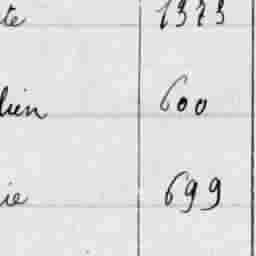 te 1373
lien 600
ie 699